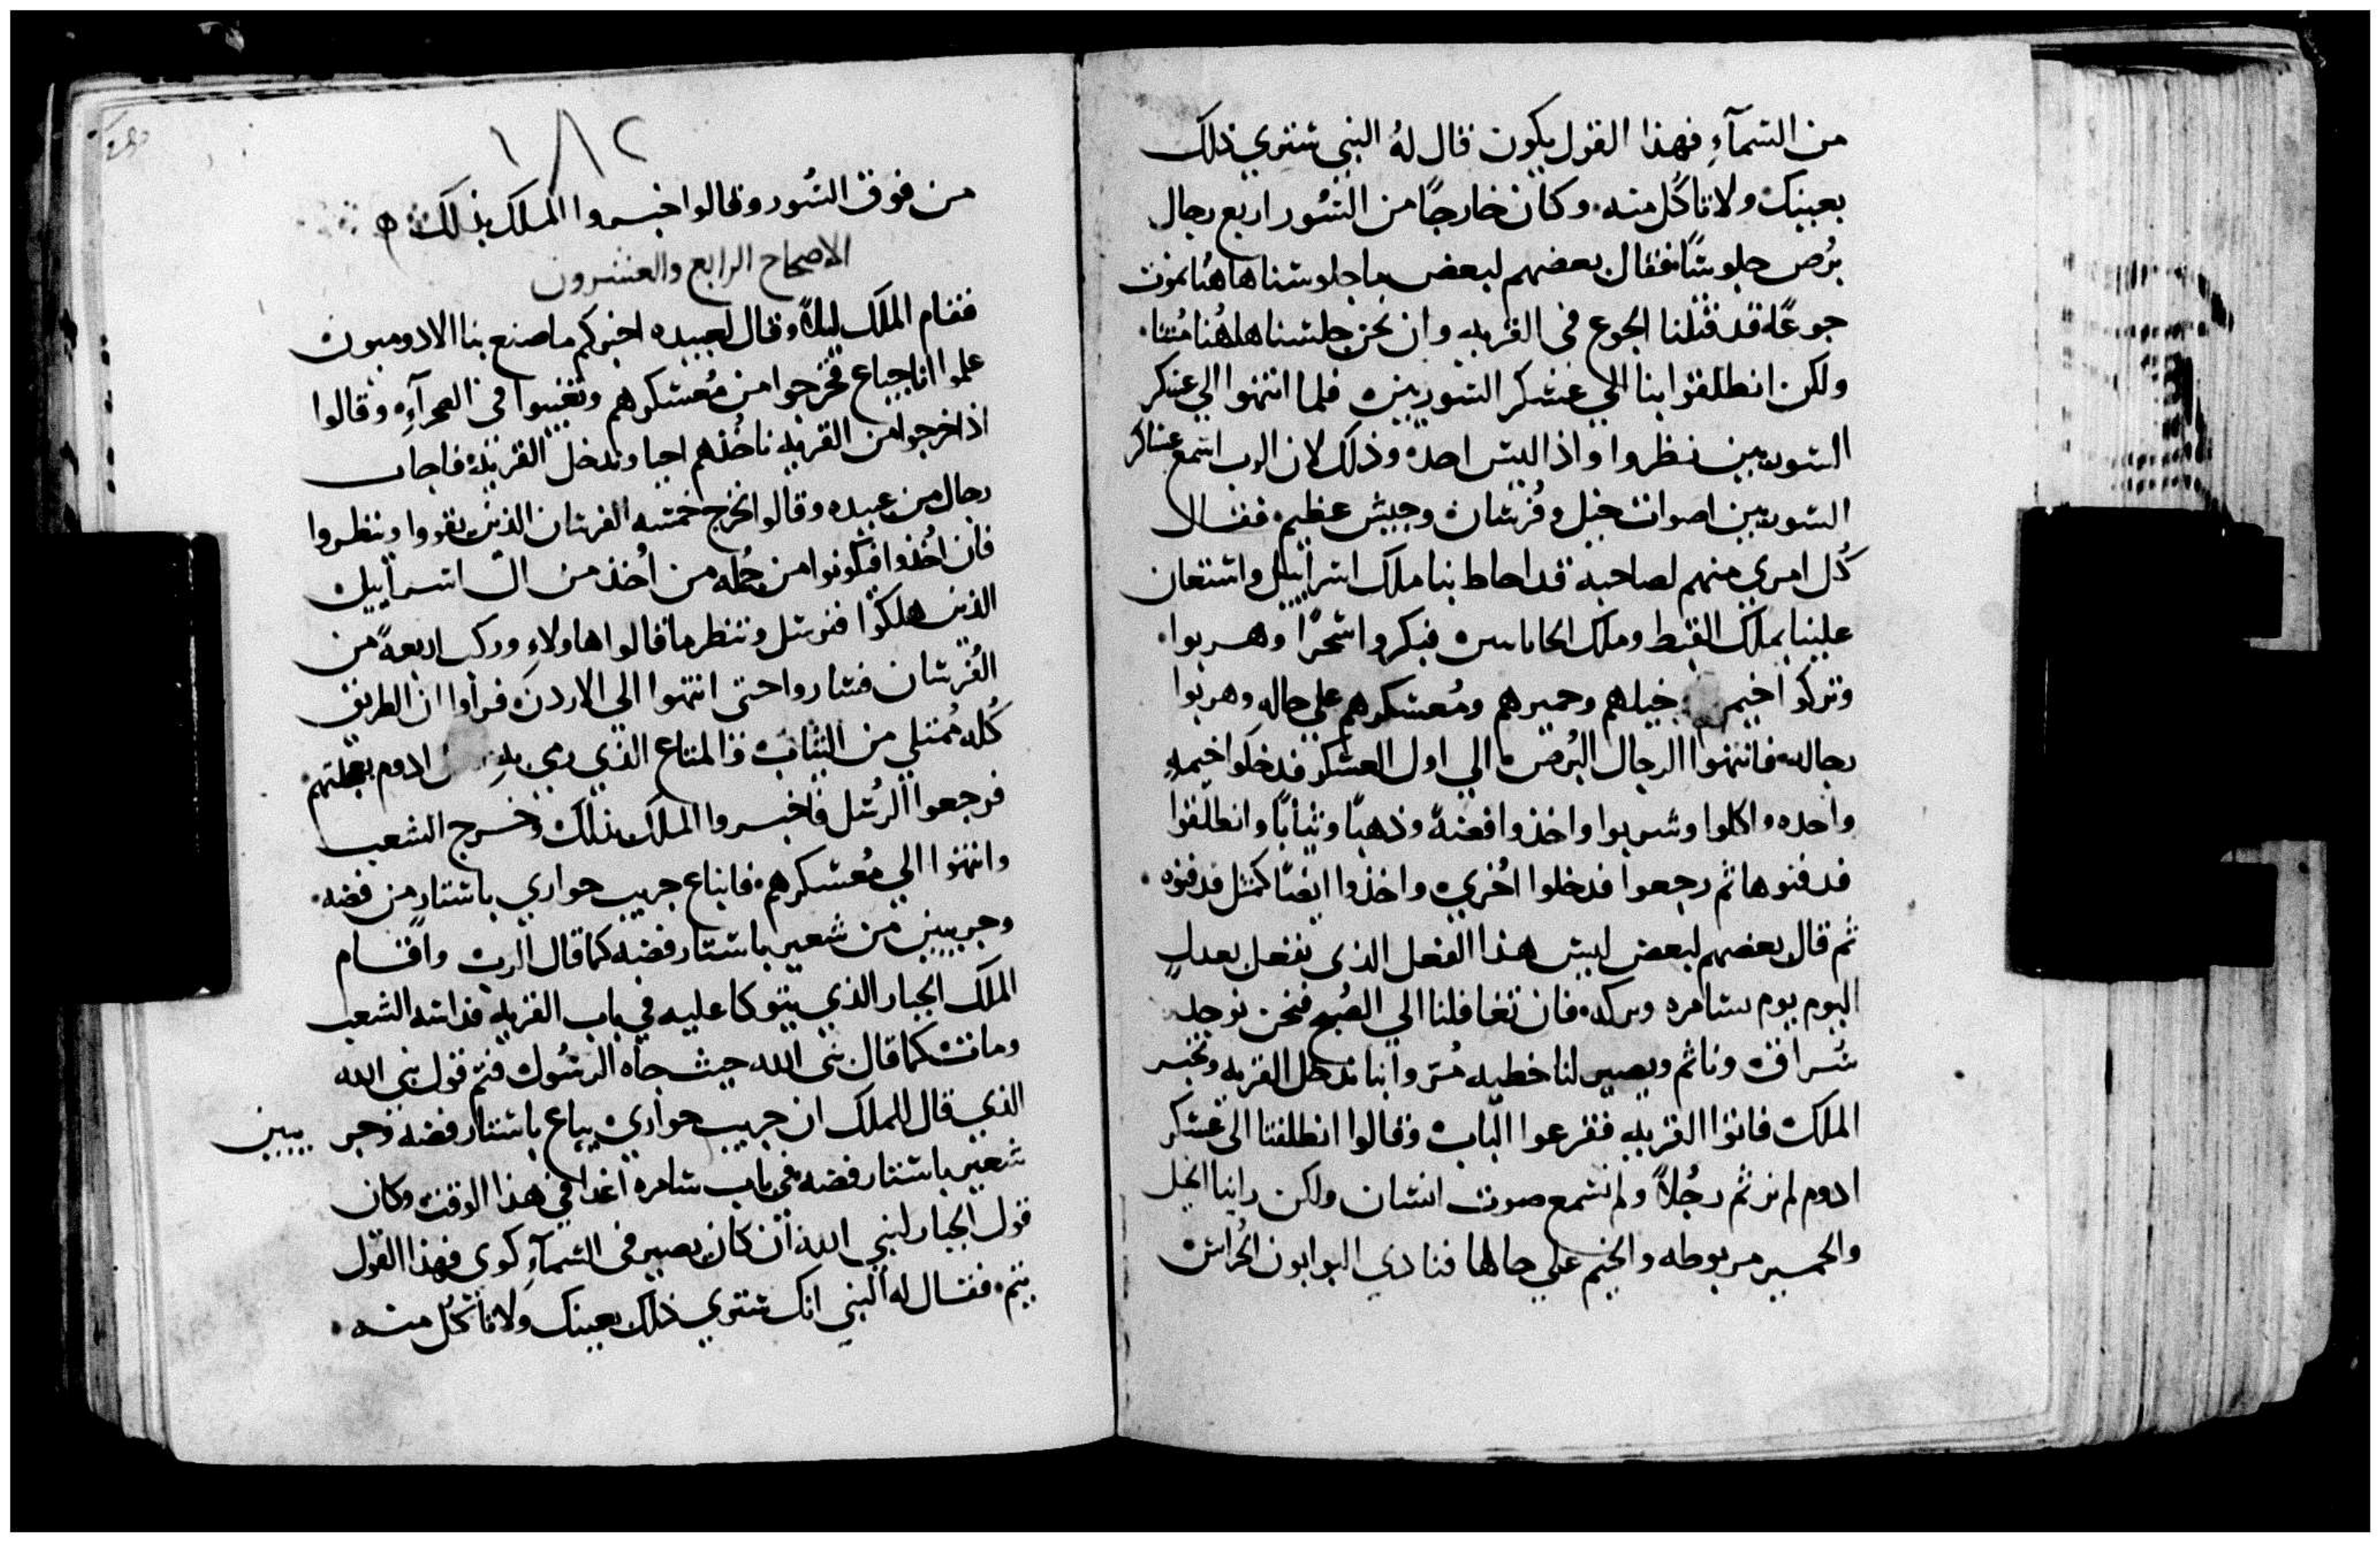 من السمآءِ فهذا القول يكون قال لهُ النبي ستري ذلك
بعينيك ولا تاكُل منه. وكان خارجًا من السُور اربع رجال
بُرص جلوسًا فقال بعضهم لبعض ما جلوسنا هاهُنا نموت
جوعًا قد قتلنا الجوع في القريه وان نحن جلسنا هاهُنا مُتنا.
ولكن انطلقوا بنا الي عسكر السوريين فلما انتهوا الي عسكر
السوريين نظروا واذا ليس احد وذلك لان الرب اسمع عساكر
السوريين اصوات خيل وفُرسان وجيش عظيم. فقال
كُل امري منهم لصاحبه قد احاط بنا ملك اسراييل واستعان
علينا بملك القبط وملك فبكروا سَحرًا وهربوا.
وتركوا خيمهم خيلهم وحميرهم ومُعسكرهم علي حاله وهربوا
رجاله فانتهوا الرجال البُرص الي اول العسكر فدخلوا خيمه
واحده واكلوا وشربوا واخذوا فضةً وذهبًا وثيابًا وانطلقوا
فدفنوها ثم رجعوا فدخلوا اخري واخذوا ايضًا كمثل فدفنوه.
ثم قال بعضهم لبعض ليس هذا الفعل الذي نفعل بعدل
اليوم يوم بشامره وبركه. فان تغافلنا الي الصُبح فنحن نوجد
سُراق وناثم ويصير لنا خطيه مُر وأننا ندخل القريه ونخبر
الملك فاتوا القريه فقرعوا الباب وقالوا انطلقنا الي عسكر
ادوم لم نر ثم رجُلاً ولم نسمع صوت انسان ولكن راينا الخيل
والحمير مربوطه والخيم علي حالها فنادي البوابون الحُراس
١٨٢
من فوق السُور وقالوا اخبروا الملك بذلك ه
الاصحاح الرابع والعشرون
فقام الملك ليلاً وقال لعبيده اخبركم ما صنع بنا الادوميون
علموا اننا جياع فخرجوا من مُعسكرهم وتغيبوا في الصحرآءِ. وقالوا
اذا خرجوا من القريه ناخُذهم احيا وندخل القريه فاجاب
رجال من عبيده وقالوا نخرج خمسه الفرسان الذين بقوا وينظروا
فان اُخذوا فيكونوا من جُمله من اُخذ من ال اسراييل
الذين هلكوا فنرسل وننظر ما قالوا هاولاءِ وركب اربعةً من
الفُرسان فساروا حتي انتهوا الي الاردن فرأوا ان الطريق
كُله مُمتلي من الثياب والمتاع الذي رمي به ادوم بعجلتهم.
فرجعوا الرُسل فاخبروا الملك بذلك وخرج الشعب
وانتهوا الي مُعسكرهم. فابتاع جريب حواري باستار من فضه.
وجريبين من شعير باستار فضه كما قال الرب واقام
الملك الجبار الذي يتوكا عليه في باب القريه فداسه الشعب
ومات كما قال نبي الله حيث جاه الرسُول فتم قول نبي الله
الذي قال للملك ان جريب حواري يباع باستار فضه وجريبين
شعير باستار فضه في باب شامره غدًا في هذا الوقت وكان
قول الجبار لنبي الله ان كان يصير في السمآءِ كوي فهذا القول
يتم. فقال له النبي انك ستري ذلك بعينيك ولا تأكُل منه.